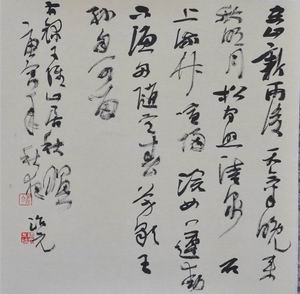 空山新雨後天氣晚來
秋明月松間照清泉石
上流竹喧歸浣女蓮動
下漁舟隨意春芳歇王
孫自可留
右錄王維山居秋暝
庚寅年秋